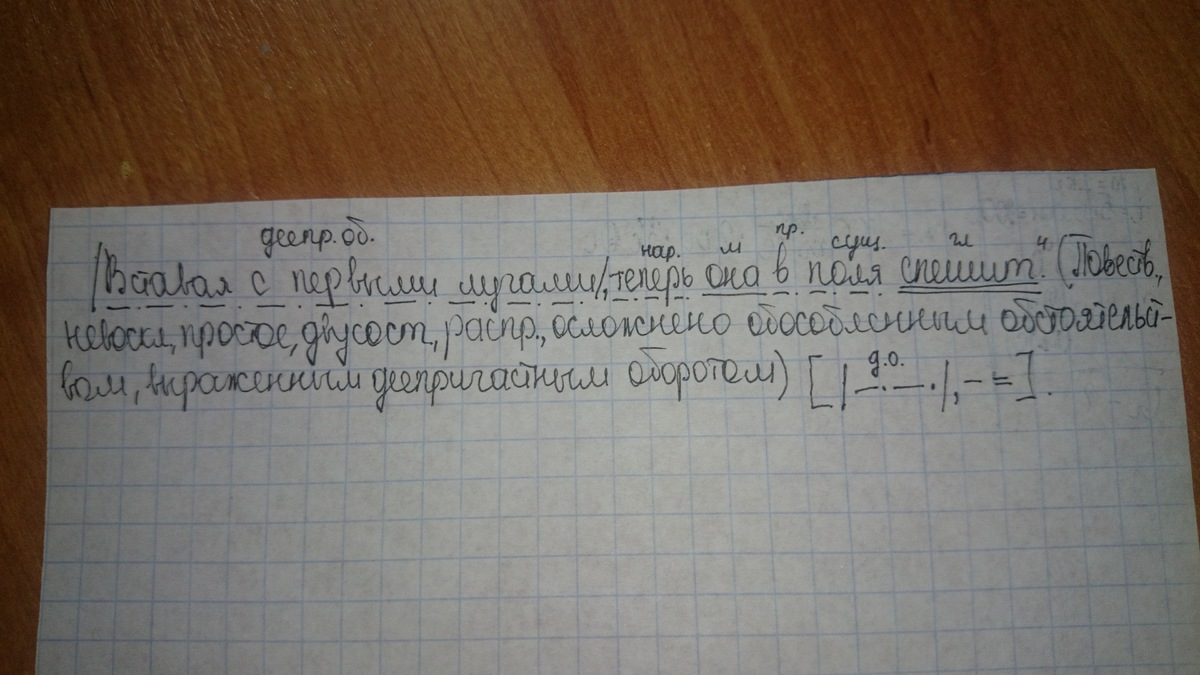 деепр. об.
нар. м пр. сущ. гл ч
|Вставая с первыми лугами|, теперь она в поля спешит. (Повеств.,
невоскл, простое, двусост, распр., осложнено обособленным обстоятельст-
вом, выраженным деепричастным оборотом) [|—.—.|, – =].
д.о.